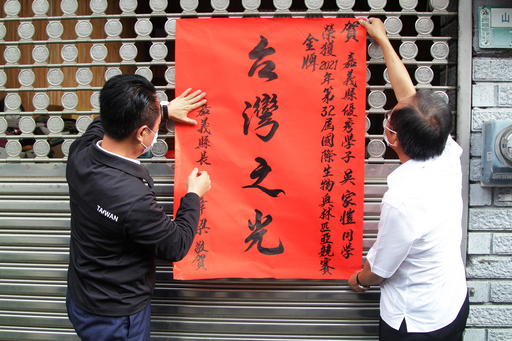 賀 嘉義縣優秀學子 吳家愷同學
榮獲2021年第32屆國際生物奧林匹亞競賽
金牌
台灣之光
嘉義縣長
梁 敬賀
TAIWAN
山